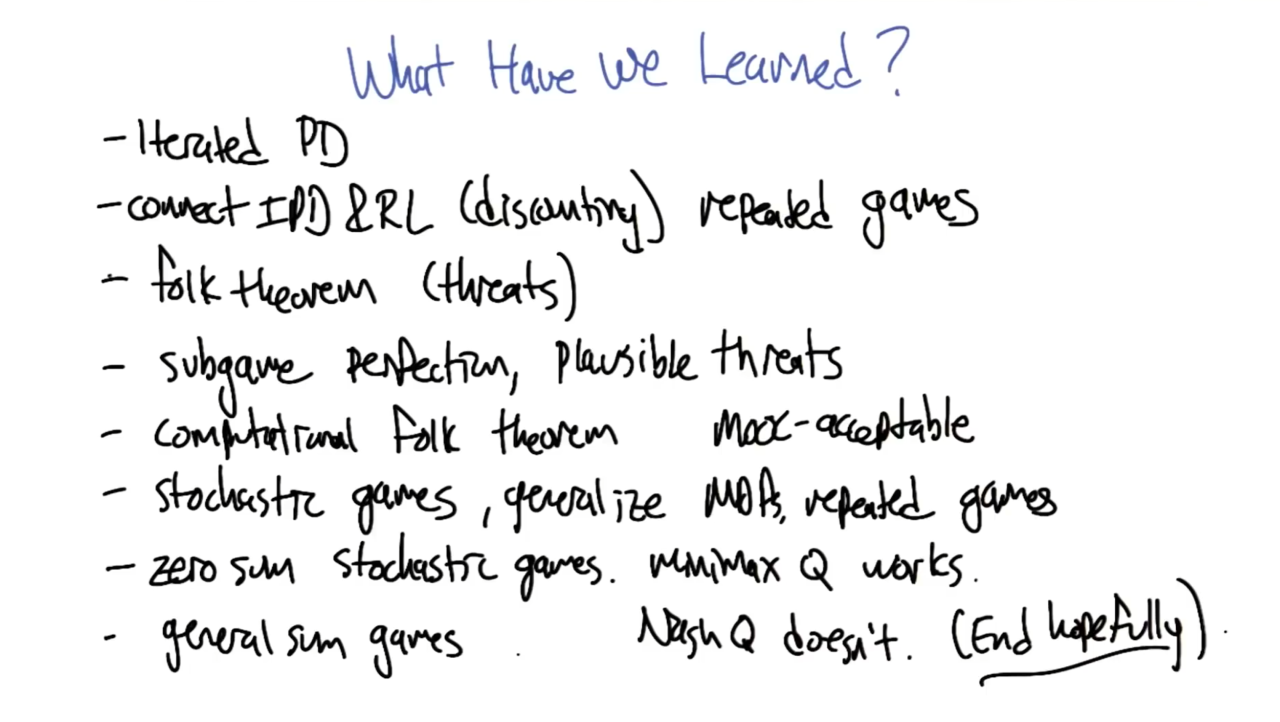 What Have We Learned?
- Iterated PD
- connect IPD & RL (discounting) repeated games
- folk theorem (threats)
- subgame perfection, plausible threats
- computational folk theorem max-acceptable
- stochastic games, generalize MDPs, repeated games
- zero sum stochastic games. minimax Q works.
- general sum games Nash Q doesn't. (End hopefully)